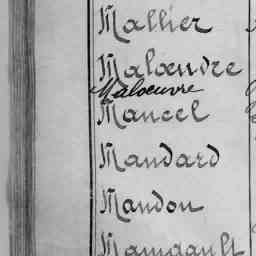 Mallier
Maloeuvre
Maloeuvre
Mancel
Mandard
Mandon
Maingault